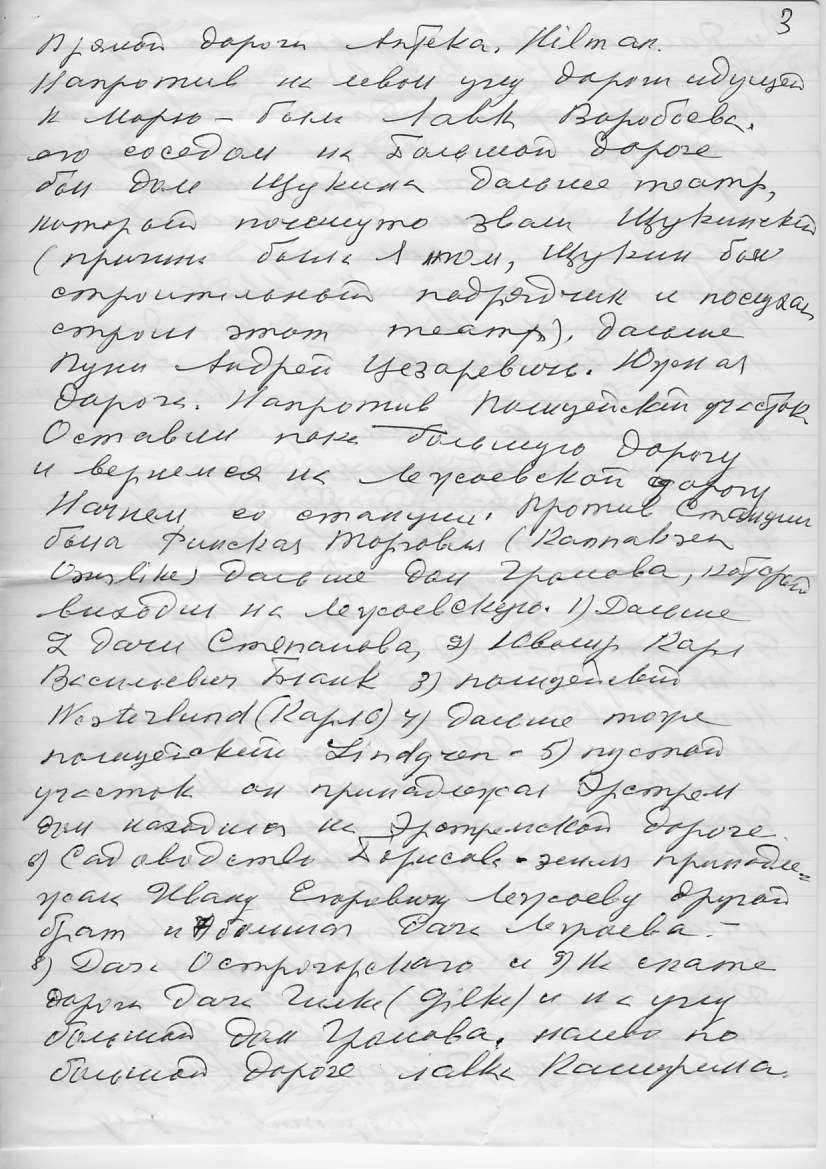 3
Прямой дороги Аптека. Hilman.
Напротив на левом углу дороги идущей
к морю – была Лавк Воробьева.
его соседом на Большой дороге
был дом Щукина дальше театр,
который почему то звали Щукинский
(причина была в том, Щукин был
строительный подрядчик и
строил этот театр). дальше
Пуни Андрей Цезаревич. Южная
дорога. Напротив Полицейский участок
Оставим пока большую дорогу
и вернемся на дорогу
Начнем со станции. Против Станции
была Финская Торговля (
дальше дом Громова, который
выходил на 1) Дальше
2 дачи Степанова, 2) Ювелир Карл
Васильевич Бланк 3) полицейский
Westerlund (Карло) 4) дальше тоже
полицейский Lindgren - 5) пустой
участок он принадлежал Эрстрем
дом находился на Эрстремской дороге.
6) Садоводство Борисова - земля принадле=
жала Ивану Егоровичу другой
брат и 7 большая Дача
8) Дача Острогорского и 9) На скате
дороги дача Гилке (Gilke) и на углу
большой дом Громова. налево по
большой дороге лавка Каширина.